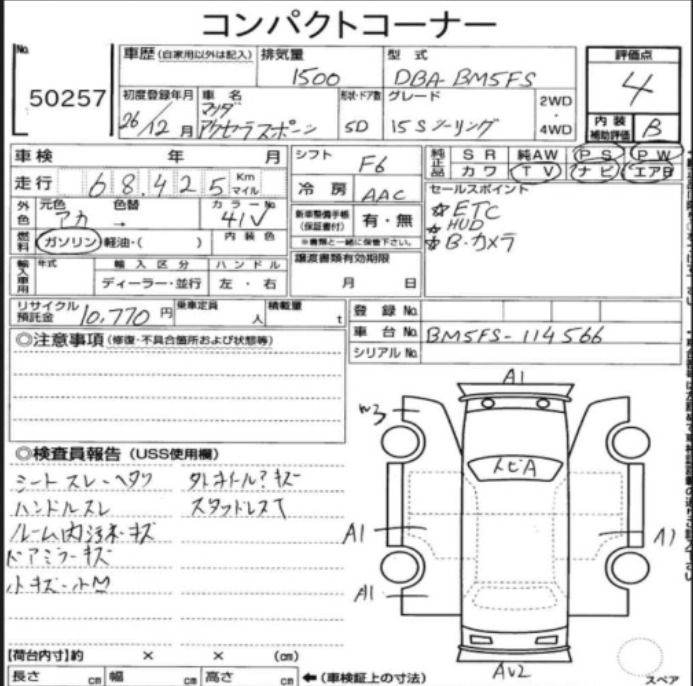 コンパクトコーナー
No.
50257
車歴(自家用以外は記入)
排気量
1500
型式
DBA-BM5FS
評価点
4
初度登録年月
26/12月
車名
マツダ
アクセラスポーツ
形状・ドア数
5D
グレード
15Sツーリング
2WD
・
4WD
内装
補助評価
B
車検 年 月
シフト
F6
純正品
SR 純AW PS PW
カワ TV ナビ エアB
走行 68,425 Km マイル
冷房
AAC
セールスポイント
☆ETC
☆HUD
☆B・カメラ
外色
元色 色替 カラーNo.
アカ → 41V
新車整備手帳
(保証書付)
有・無
※書類と一緒に保管下さい。
燃料
ガソリン・軽油・( )
内装色
譲渡書類有効期限
月 日
輸入車用
年式 輸入区分 ハンドル
ディーラー・並行 左・右
リサイクル
預託金
10,770円
乗車定員
人
積載量
t
登録No.
車台No.
BM5FS-114566
シリアルNo.
◎注意事項(修復・不具合箇所および状態等)
◎検査員報告(USS使用欄)
シートスレ・ヘタリ
ハンドルスレ
ルーム内汚れ・キズ
ドアミラーキズ
小キズ・小凹
外ホイールアキズ
スタッドレスT
A1
W3
トビA
A1
A1
A1
AU2
スペア
【荷台内寸】約 × × (cm)
長さ cm 幅 cm 高さ cm ←(車検証上の寸法)